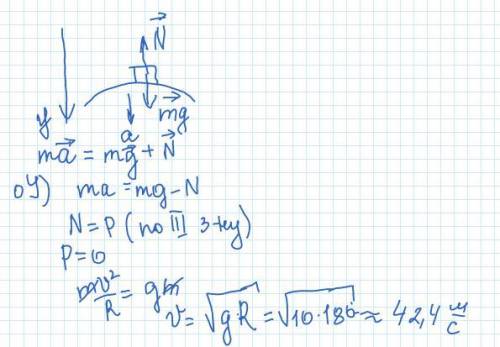 N⃗
y
a⃗
mg⃗
ma⃗ = mg⃗ + N⃗
оy) ma = mg - N
N = P (по III з-ну)
P = 0
mv²/R = gm
v = √gR = √10·180 ≈ 42,4 м/с